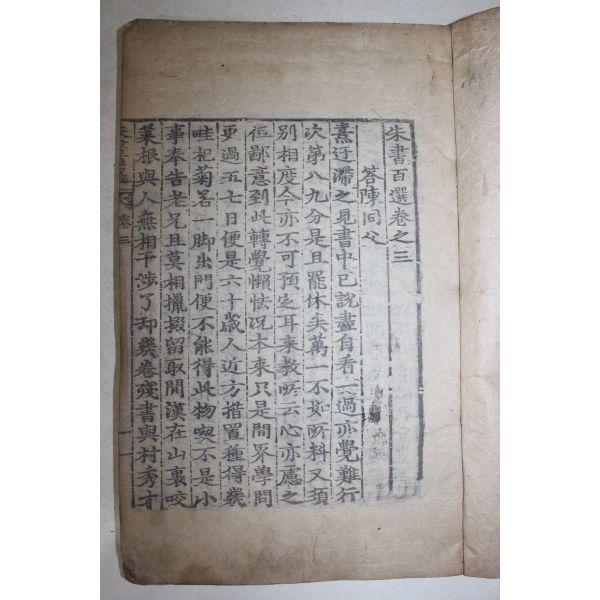 朱書百選卷之三
答陳同父
熹迂滯之見書中已說盡自看一過亦覺難行
次第八九分是且罷休矣萬一不如所料又須
別相度今亦不可預定耳來教所云心亦慮之
但鄙意到此轉覺懶怯况本來只是間界學問
更過五七日便是六十歲人近方措置種得幾
畦杞菊若一脚出門便不能得此物喫不是小
事奉告老兄且莫相攛掇留取閒漢在山裏咬
菜根與人無相干涉了却幾卷殘書與村秀才
朱書百選 卷三 一